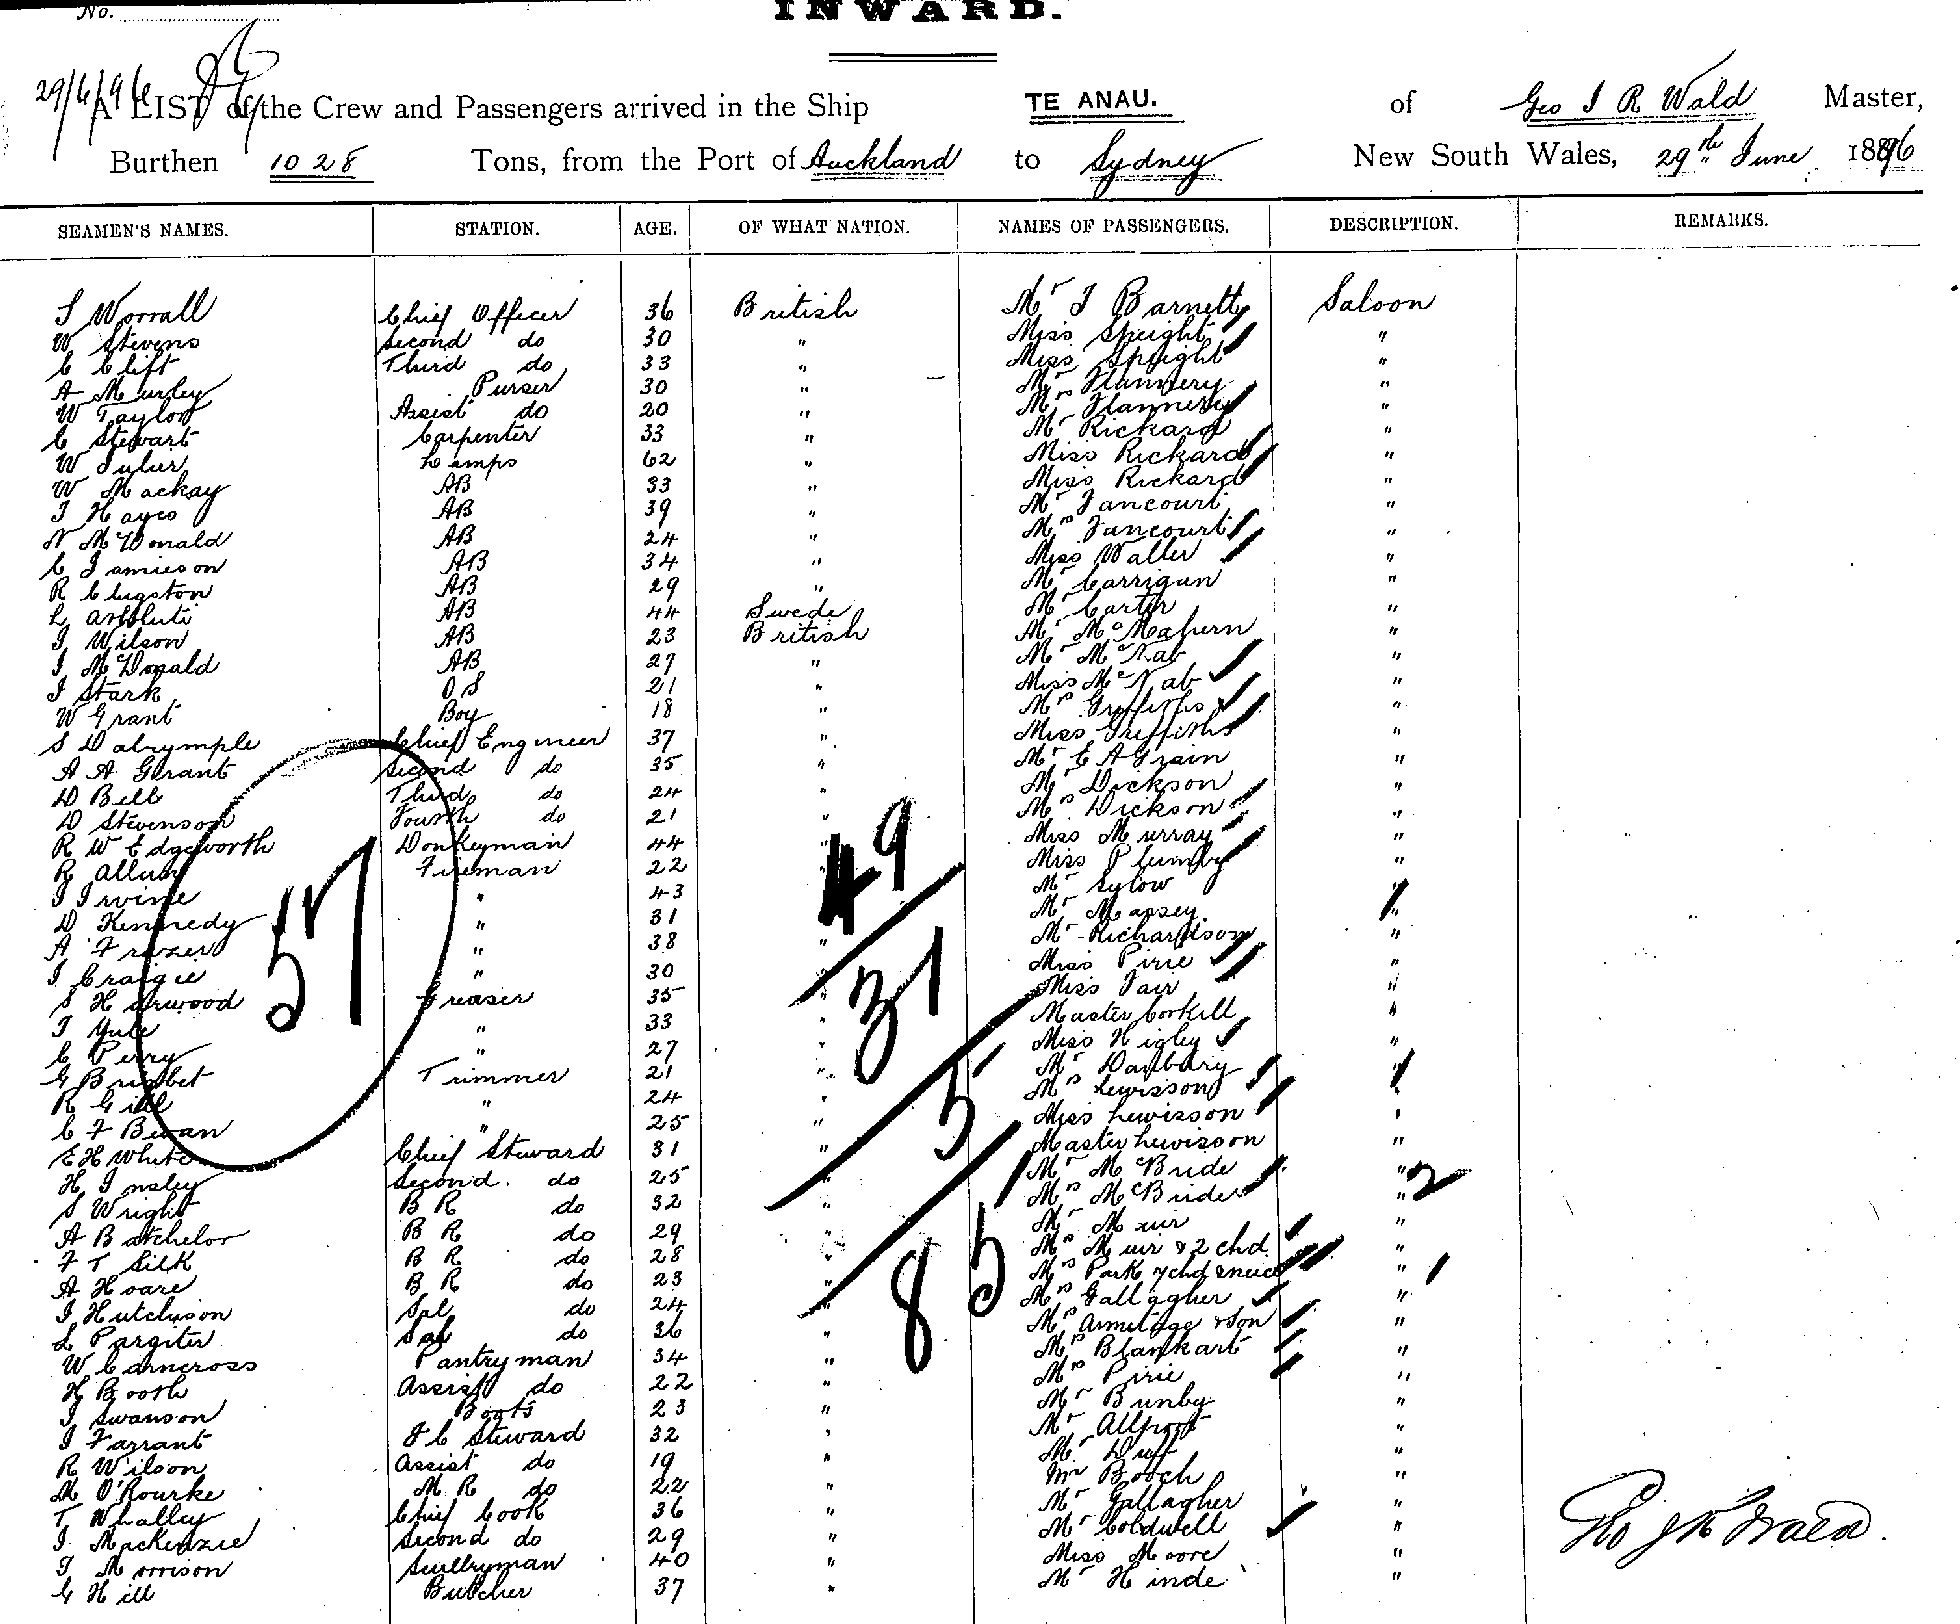 No.
INWARD.
29/6/96
A LIST of the Crew and Passengers arrived in the Ship TE ANAU. of Geo J R Wald Master,
Burthen 1028 Tons, from the Port of Auckland to Sydney New South Wales, 29th June 1896
SEAMEN'S NAMES. STATION. AGE. OF WHAT NATION. NAMES OF PASSENGERS. DESCRIPTION. REMARKS.
S Worrall Chief Officer 36 British Mr J Barnett Saloon
W Stevens Second do 30 " Miss Speight "
C Clift Third do 33 " Miss Speight "
A Murley Purser 30 " Mr Flannery "
W Taylor Assist do 20 " Mrs Flannery "
C Stewart Carpenter 33 " Mr Rickard "
W Lamps 62 " Miss Rickard "
W Mackay AB 33 " Miss Rickard "
J Hayes AB 39 " Mr Fancourt "
N McDonald AB 24 " Mrs Fancourt "
C Jamieson AB 34 " Miss Waller "
R Clugston AB 29 " Mr Carrigan "
L AB 44 Swede Mr Carter "
J Wilson AB 23 British Mr "
J McDonald AB 27 " Mr McNab "
J Stark OS 21 " Miss McNab "
W Grant Boy 18 " Mrs Griffiths "
S Dalrymple Chief Engineer 37 " Miss Griffiths "
A A Grant Second do 35 " Mr E A Grain "
D Bell Third do 24 " Mr Dickson "
D Stevenson Fourth do 21 " Mrs Dickson "
R W Edgeworth Donkeyman 44 " Miss Murray "
R Allum Fireman 22 " Miss Plumby "
J Irvine " 43 " Mr Sylow "
D Kennedy " 31 " Mr Massey "
A Frazer " 38 " Mr Richardson "
J Craigie " 30 " Miss Pirie "
S Harwood Greaser 35 " Miss Fair "
J Yule " 33 " Master Corkill "
C Perry " 27 " Miss Higley "
G Trimmer 21 " Mr Danbury "
R Gill " 24 " Mrs Lewisson "
C F Bevan " 25 " Miss Lewisson "
E H White Chief Steward 31 " Master Lewisson "
H Insley Second do 25 " Mr McBride "
S Wright B R do 32 " Mrs McBride "
A Batchelor B R do 29 " Mr Muir "
F T Silk B R do 28 " Mrs Muir & 2 chd "
A Hoare B R do 23 " Mrs Park 7 chd & neice "
J Hutchison Spl do 24 " Mrs Gallagher "
L Pargiter Sal do 36 " Mrs Armitage & Son "
W Carncross Pantryman 34 " Mrs Blankart "
H Booth Assist do 22 " Mrs Pirie "
J Swanson Boots 23 " Mr Bunby "
J Farrant F C Steward 32 " Mr Allport "
R Wilson Assist do 19 " Mr Duff "
M O'Rourke M R do 22 " Mr Booch "
T Whalley Chief Cook 36 " Mr Gallagher "
J Mackenzie Second do 29 " Mr Coldwell "
J Morrison Scullryman 40 " Miss Moore "
G Hill Butcher 37 " Mr Hinde "
57
49
31
5
85
2
Geo J R Wald